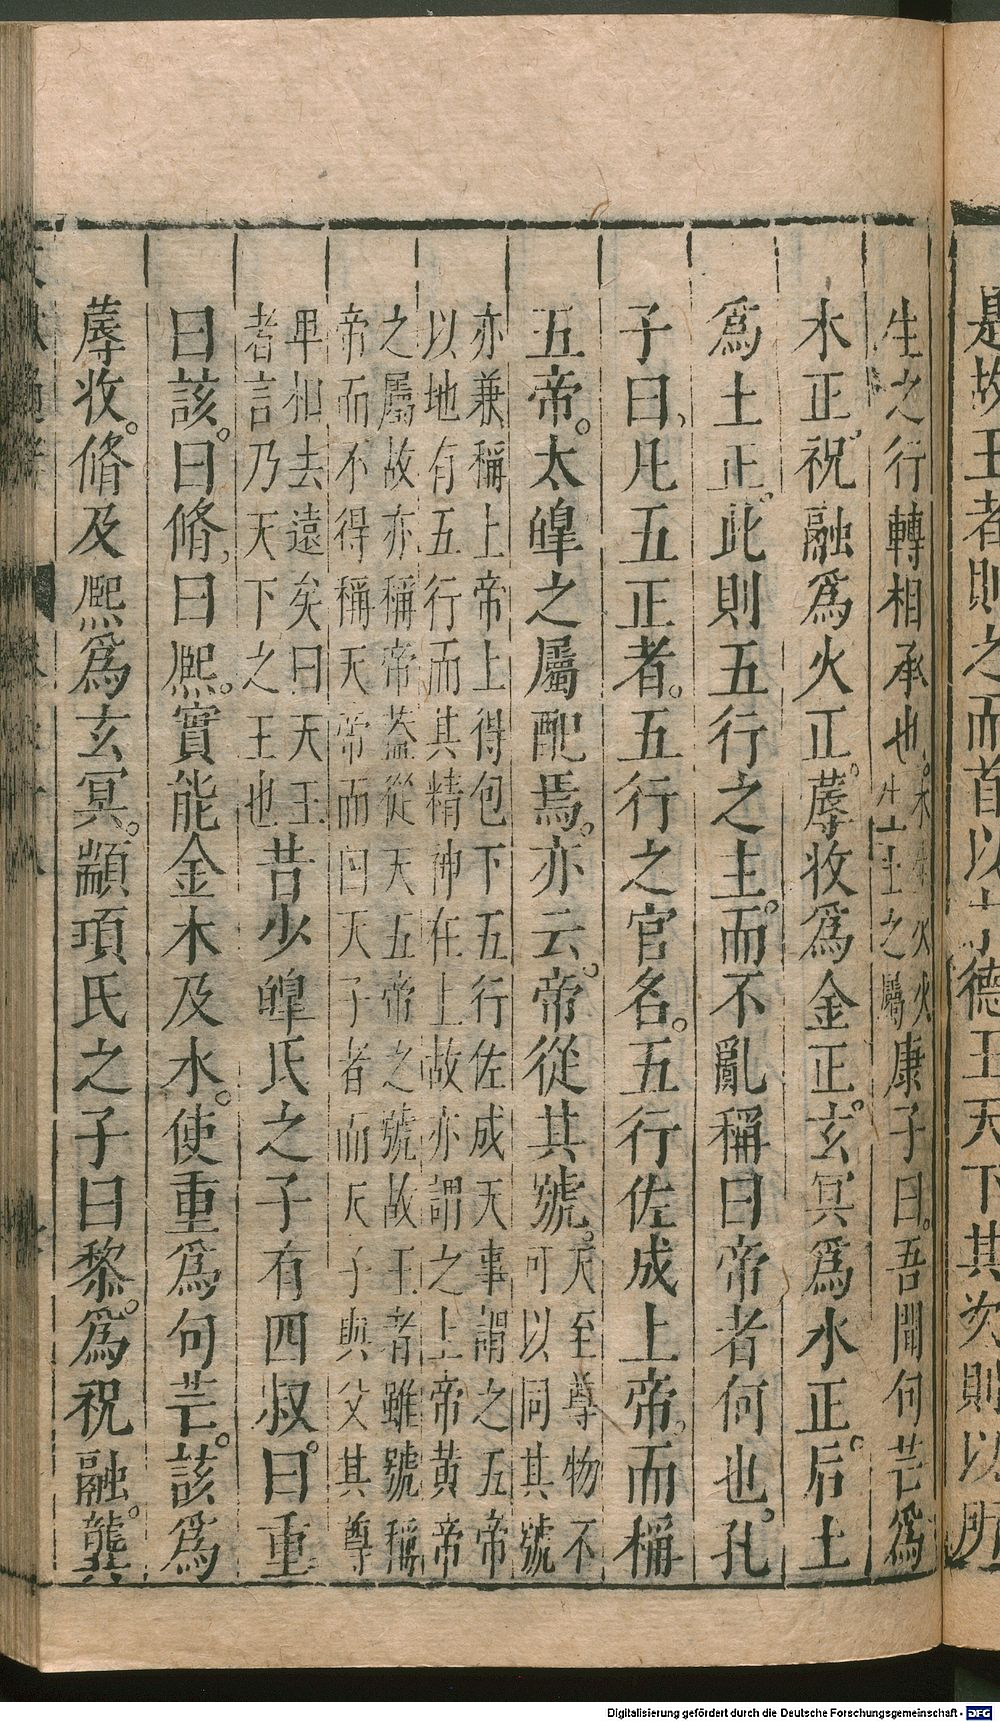 是故王者則之而首以木德王天下其次則以所
生之行轉相承也。木生火火
生土土之屬康子曰。吾聞句芒爲
木正。祝融爲火正。蓐收爲金正。玄冥爲水正。后土
爲土正。此則五行之主。而不亂稱曰帝者何也。孔
子曰,凡五正者。五行之官名。五行佐成上帝,而稱
五帝。太皞之屬配焉。亦云。帝從其號。天至尊物不
可以同其號
亦兼稱上帝上得包下五行佐成天事謂之五帝
以地有五行而其精神在上故亦謂之上帝黃帝
之屬故亦稱帝葢從天五帝之號故王者雖號稱
帝而不得稱天帝而曰天子者而天子與父其尊
卑相去遠矣曰天王
者言乃天下之王也昔少皞氏之子有四叔。曰重
曰該。曰脩,曰熙。實能金木及水。使重爲句芒。該爲
蓐收。脩及熙爲玄冥。顓頊氏之子曰黎。爲祝融。龔
Digitalisierung gefördert durch die Deutsche Forschungsgemeinschaft - DFG